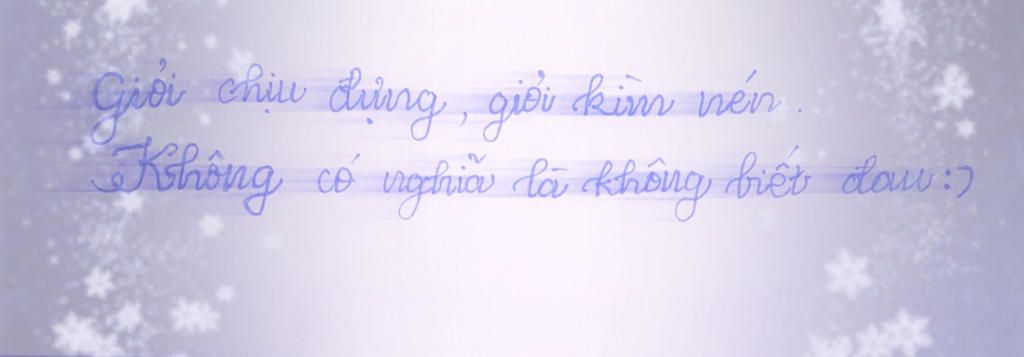 Giỏi chịu đựng, giỏi kìm nén.
Không có nghĩa là không biết đau:)